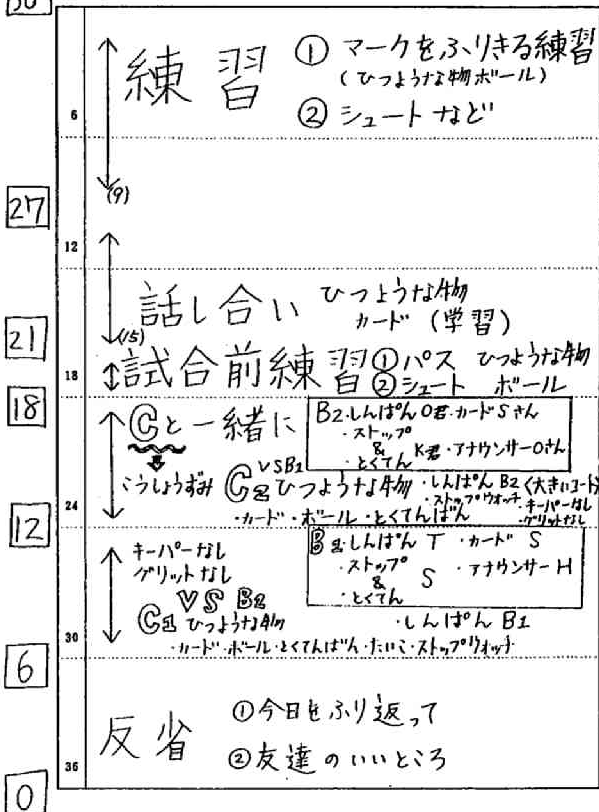 30
練習 ① マークをふりきる練習
(ひつような物ボール)
② シュートなど
6
(9)
27
12
話し合い ひつような物
カード (学習)
21
(15)
試合前練習 ①パス ひつような物
②シュート ボール
18
18
Ⓒと一緒に
こうしょうずみ
B2・しんぱん O君・カードSさん
・ストップ
& K君・アナウンサーOさん
・とくてん
C2 VSB1 ひつような物 ・しんぱん B2 (大きいコート)
・ストップウォッチ ・キーパーなし
・カード・ボール・とくてんばん ・グリットなし
24
12
キーパーなし
グリットなし
・しんぱん T ・カード S
・ストップ
& S ・アナウンサー H
・とくてん
C1 VS B2
ひつような物 ・しんぱん B1
・カード・ボール・とくてんばん・たいこ・ストップウォッチ
30
6
反省 ①今日をふり返って
②友達のいいところ
36
0